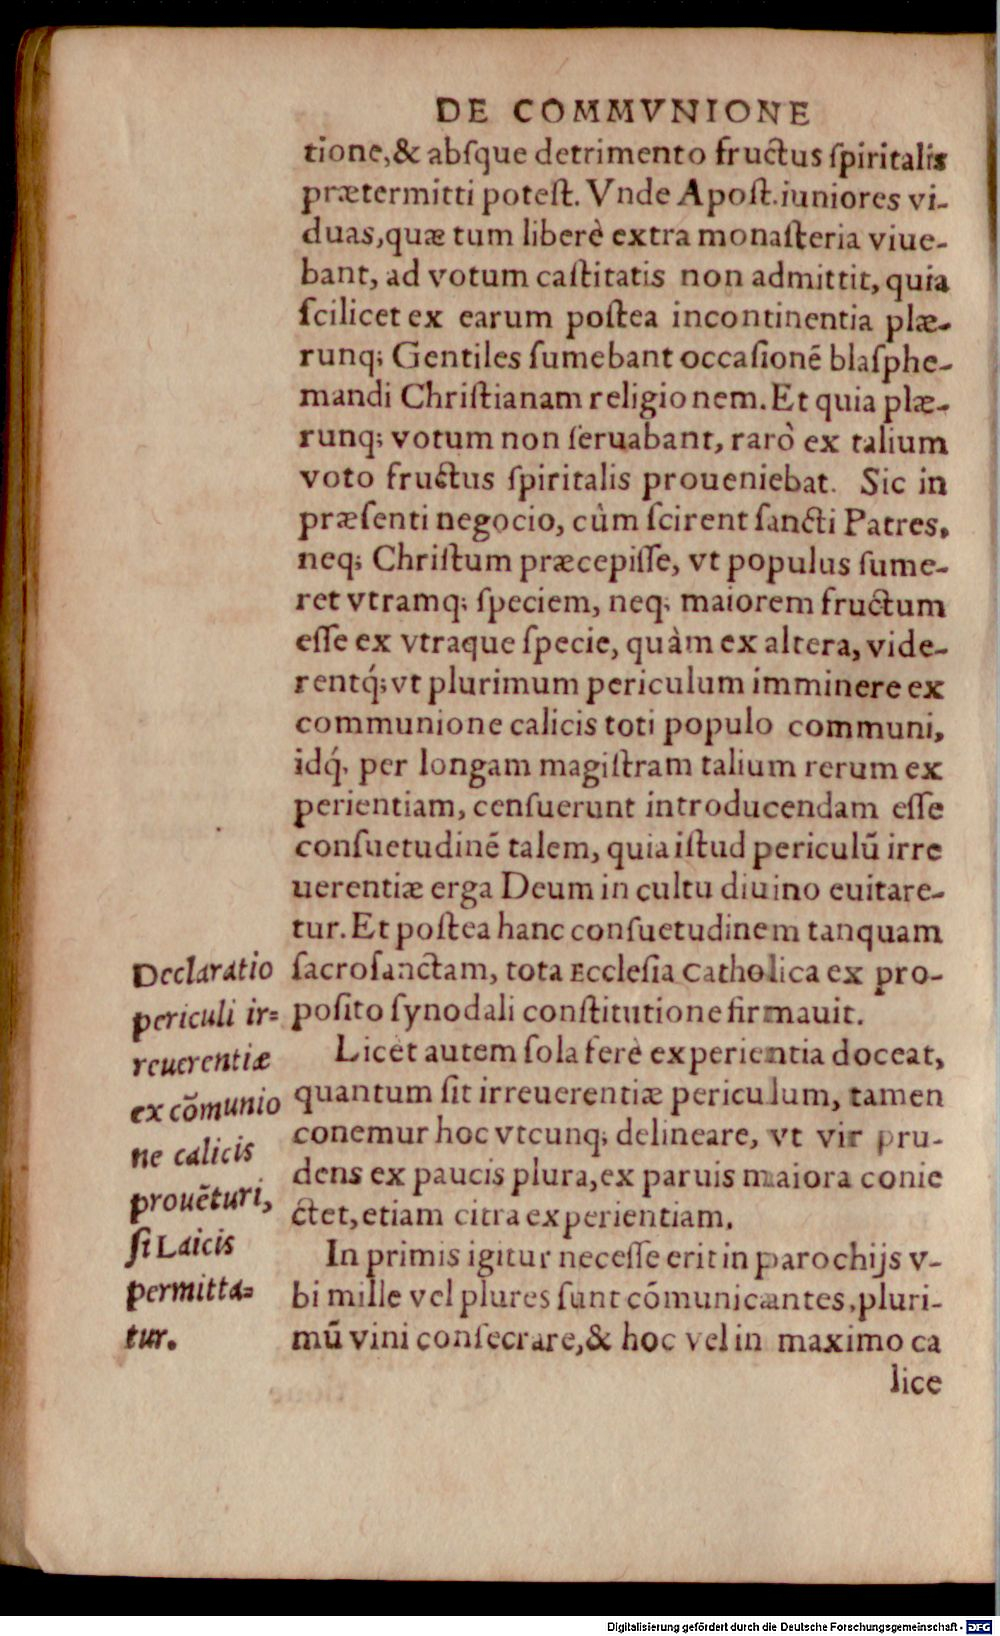 DE COMMVNIONE
tione,& absque detrimento fructus spiritalis
prætermitti potest. Vnde Apost.iuniores vi-
duas,quæ tum liberè extra monasteria viue-
bant, ad votum castitatis non admittit, quia
scilicet ex earum postea incontinentia plæ-
runq; Gentiles sumebant occasionē blasphe-
mandi Christianam religionem.Et quia plæ-
runq; votum non seruabant, rarò ex talium
voto fructus spiritalis proueniebat. Sic in
præsenti negocio, cùm scirent sancti Patres,
neq; Christum præcepisse, vt populus sume-
ret vtramq; speciem, neq; maiorem fructum
esse ex vtraque specie, quàm ex altera, vide-
rentq́;vt plurimum periculum imminere ex
communione calicis toti populo communi,
idq́; per longam magistram talium rerum ex
perientiam, censuerunt introducendam esse
consuetudinē talem, quia istud periculū irre
uerentiæ erga Deum in cultu diuino euitare-
tur. Et postea hanc consuetudinem tanquam
sacrosanctam, tota Ecclesia Catholica ex pro-
posito synodali constitutione firmauit.
Licèt autem sola ferè experientia doceat,
quantum sit irreuerentiæ periculum, tamen
conemur hoc vtcunq; delineare, vt vir pru-
dens ex paucis plura,ex paruis maiora conie
ctet,etiam citra experientiam.
In primis igitur necesse erit in parochijs v-
bi mille vel plures sunt cōmunicantes,pluri-
mū vini consecrare,& hoc vel in maximo ca
lice
Declaratio
periculi ir=
reuerentiæ
ex cōmunio
ne calicis
prouēturi,
si Laicis
permitta=
tur.
Digitalisierung gefördert durch die Deutsche Forschungsgemeinschaft - DFG